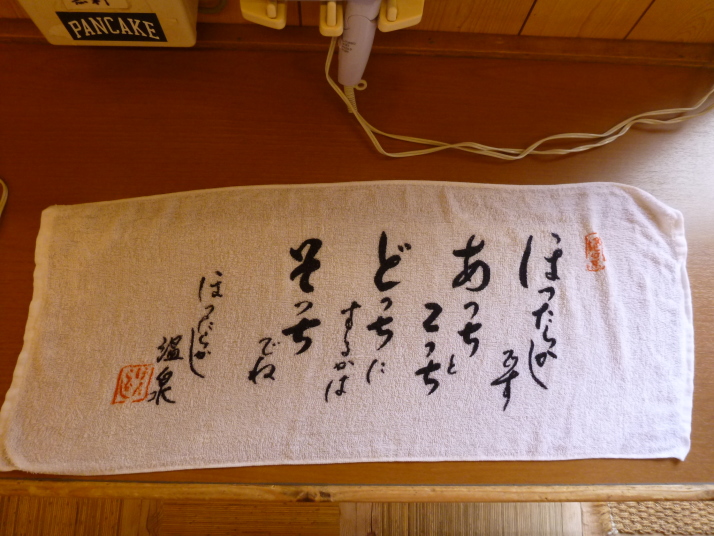 PANCAKE
ほったらかし
です
あっちと
こっち
どっちに
するかは
そっち
でね
ほったらかし
温泉